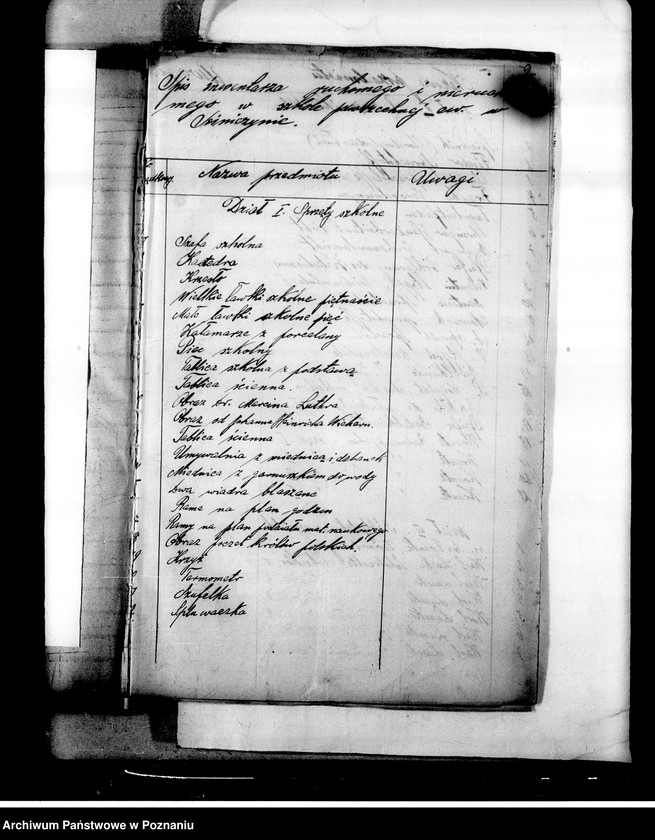 Spis inwentarza ruchomego i nierucho
mego w szkole powszechnej ew. w
Nazwa przedmiotu
Uwagi
Dział I. Sprzęty szkolne
Szafa szkolna
Katedra
Krzesło
Wielkie ławki szkólne piętnaście
Małe ławki szkolne pięć
Kałamarze z porcelany
Piec szkolny
Tablica szkólna z podstawą
Tablica ścienna.
Obraz Dr. Marcina Lutra
Obraz od Johanna Heinricha Wichern.
Tablica ścienna
Umywalnia z miednicą i dzbanek
Miednica z garnuszkiem do wody
Dwa wiadra blaszane
Rama na plan godzin
Ramy na plan podziału mat. naukowego
Obraz poczet królów polskich.
Krzyż
Termometr
Szufelka
Spluwaczka
Archiwum Państwowe w Poznaniu